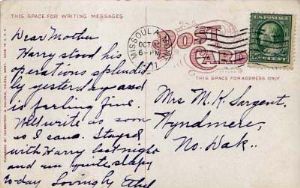 THIS SPACE FOR WRITING MESSAGES
Dear Mother
Harry stood his
operations splendid
ly yesterday and
is feeling fine.
Will write as soon
as I can. Stayed
with Harry last night
and am quite sleepy
today Lovingly Ethel
MISSOULA
OCT
6-PM
POST
CARD
THIS SPACE FOR ADDRESS ONLY
Mrs M. K. Sargent,
Wyndmere,
No. Dak.